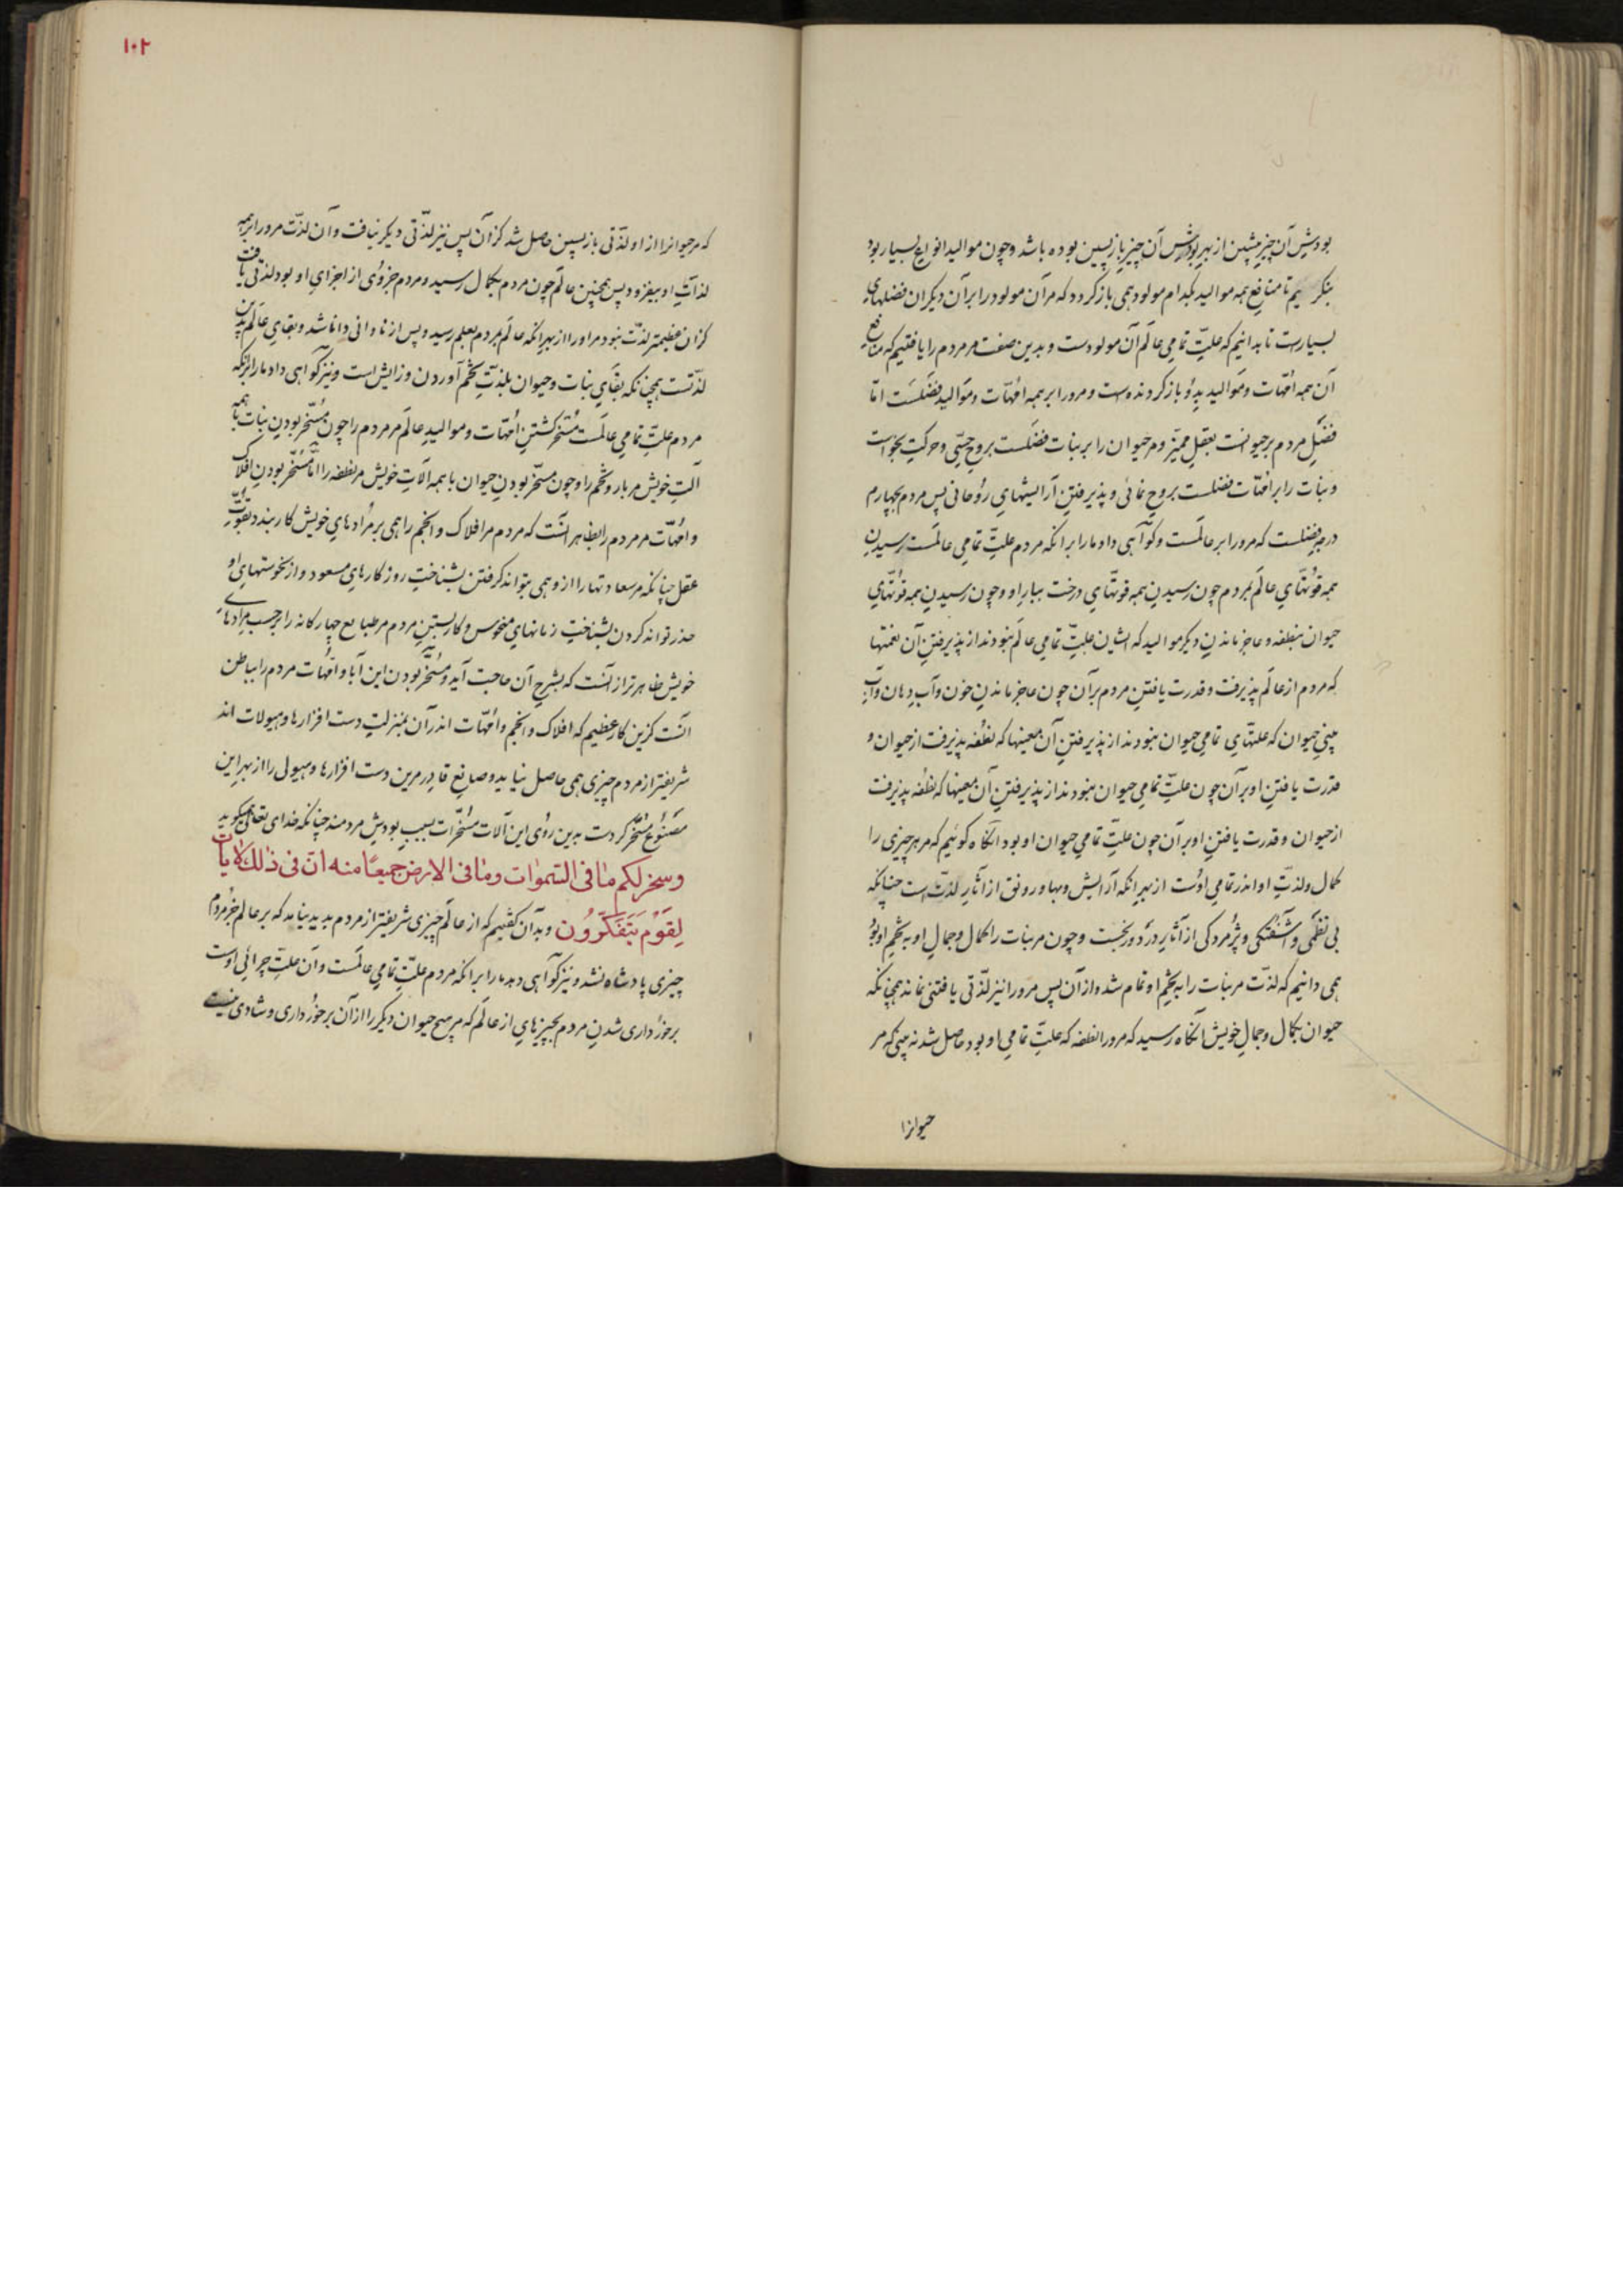 بودش آن چیز پیشین از بهر بودش آن چیز بازپسین بوده باشد و چون موالید انواع بسیار بود
بنگریم تا منافع همه موالید بکدام مولود همی بازگردد که مر آن مولود را بر آن دیگران فضلهای
بسیارست تا بدانیم که علّتِ تمامیِ عالَم آن مولودست و بدین صفت مر مردم را یافتیم که منافعِ
آن همه امّهات و موالید بدُو بازگردنده ست و مرورا بر همه امّهات و موالید فضلَست امّا
فضلِ مردم بر حیوانست بعقلِ ممیّز و مر حیوان را بر نبات فضلست بروحِ حسّی و حرکتِ بخواست
و نبات را بر امّهات فضلست بروحِ نمائی و پذیرفتنِ آرایشهایِ رُوحانی پس مردم بچهارم
درجه فضلست که مرورا بر عالَمست و گوآهی داد ما را بر انکه مردم علّتِ تمامیِ عالَمست رسیدنِ
همه قُوّتهآیِ عالَم بمردم چون رسیدنِ همه قوتّهآیِ درخت ببارِ او و چون رسیدنِ همه قُوتّهآیِ
حیوان بنطفه و عاجز ماندنِ دیگر موالید که ایشان علّتِ تمامیِ عالَم نبودند از پذیرفتنِ آن نعمتها
که مردم از عالَم پذیرفت و قدرت یافتنِ مردم بر آن چون عاجز ماندنِ خون و آبِ دِهان و آبِ
بینیِ حیوان که علتهآیِ تمامیِ حیوان نبودند از پذیرفتنِ آن معینها که نطُفه پذیرفت از حیوان و
قدرت یافتنِ او بر آن چون علّتِ تمامیِ حیوان نبودند از پذیرفتنِ آن معینها که نطُفه پذیرفت
از حیوان و قدرت یافتنِ او بر آن چون علّتِ تمامیِ حیوان او بود انگاه گوئیم که مر هر چیزی را
کمال و لذّتِ او اندر تمامیِ اوُست از بهرِ انکه آرایش و بها و رونق از آثارِ لذّت است چنانکه
بی نظمی و آشفتگی و پژمردگی از آثارِ دَرد و رنجست و چون مر نبات را کمال و جمالِ او به تخمِ او بُوَد
همی دانیم که لذّت مر نبات را به تخمِ او تمام شده از آن پس مرورا نیز لذّتی یافتنی نماند همچنانکه
حیوان بکمال و جمالِ خویش آنگاه رسید که مرورا نطفه که علّتِ تمامیِ او بود حاصل شد نه بینی که مر
حیوانرا
۱۰۲
که مر حیوانرا از او لذّتی بازپسین حاصل شد کز آن پس نیز لذّتی دیگر نیافت و آن لذّت مرورا بر همه
لذّاتِ او بیفزود پس همچنین عالَم چون مردم بکمال رسید و مردم جزوُی از اجزایِ او بود لذّتی یافت
کز ان عظیمتر لذّت نبود مر اورا از بهر انکه عالَم بمردم بعلم رسید و پس از نادانی دانا شد و بقایِ عالَم بدین
لذّتست همچنانکه بقآیِ نبات و حیوان بلذّتِ تخم آوردن و زایش است و نیز گوآهی داد ما را بر آنکه
مردم علّتِ تمامیِ عالَمست مُسَخّر گشتنِ امُهّات و موالیدِ عالَم مر مردم را چون مُسَخّر بودنِ نبات با همه
آلتِ خویش مر بار و تخم را و چون مسخّر بودنِ حیوان با همه آلاتِ خویش مر نطفه را امّا مُسَخّر بودنِ افلاک
و امُهّات مر مردم را بظاهر آنست که مردم مر افلاک و انجم را همی بر مُرادهایِ خویش کار بندد بقُوّتِ
عقل چنانکه مر سعادتها را از و همی بتواند گرفتن بشناختِ روزگارهایِ مسعود و از نحوستهایِ او
حذر تواند کردن بشناختِ زمانهایِ منحوس و کاربستنِ مردم مر طبایع چهارگانه را بر حسب مُرادهایِ
خویش ظاهرتر از آنست که بشرحِ آن حاجت آید و مُسَخّر بودن این آبا و امّهات مردم را بباطن
آنست کزین کار عظیم که افلاک و انجم و امُهّات اندر آن بمنزلتِ دست افزارها و هیولات اند
شریفتر از مردم چیزی همی حاصل نیاید و صانعِ قادر مرین دست افزارها و هیولی را از بهرِ این
مصنُوع مُسَخّر کردست بدین رُوی این آلات مُسَخّرات بسببِ بودشِ مردمند چنانکه خدای تعالی میگوید
وسخر لکم ما فی السموات وما فی الارض جمیعًا منه ان فی ذلک لایات
لِقَوْمٍ یَتَفَکَّرُون و بدآن گفتیم که از عالَم چیزی شریفتر از مردم پدید نیامد که بر عالم جز مردم
چیزی پادشاه نشد و نیز گوآهی دهد ما را بر انکه مردم علّتِ تمامیِ عالَمست و آن علّتِ چرائیِ اوست
برخوُرداری شدنِ مردم بچیزهایِ از عالَم که مر هیچ حیوان دیگر را از آن برخوُرداری و شادی نیست